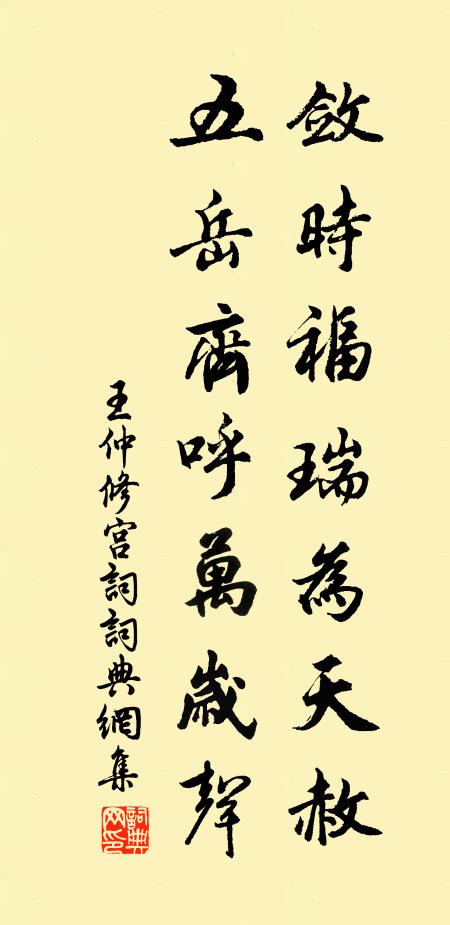 斂時福瑞為天赦
五岳齊呼萬歲聲
王仲修宮詞詞典網集
詞典網印